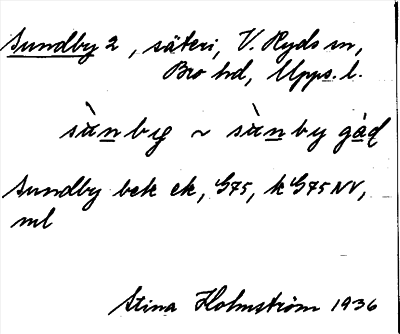 Sundby 2, säteri, V. Ryds sn,
Bro hd, Upps. l.
sùnby ~ sùnby gàd
Sundby bek ek, G75, k G75 NV,
ml
Stina Holmström 1936